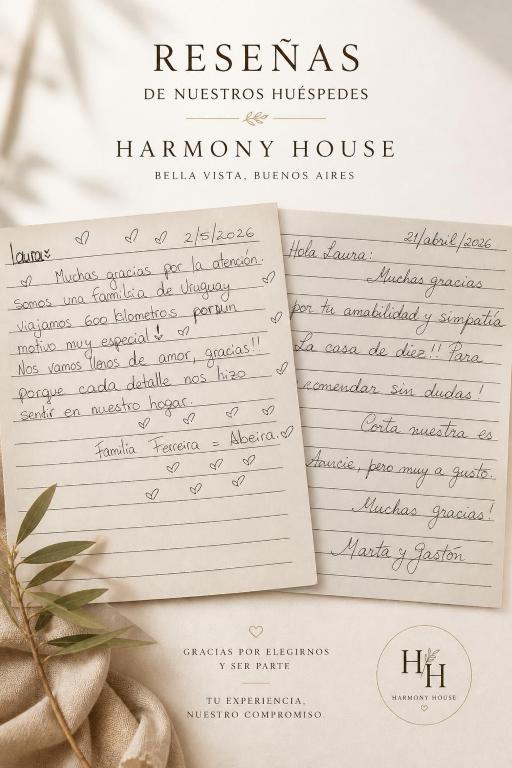 RESEÑAS
DE NUESTROS HUÉSPEDES
HARMONY HOUSE
BELLA VISTA, BUENOS AIRES
2/5/2026
laura:
Muchas gracias por la atención.
somos una familia de Uruguay
viajamos 600 kilometros por un
motivo muy especial!
Nos vamos llenos de amor, gracias!!
porque cada detalle nos hizo
sentir en nuestro hogar.
Familia Ferreira = Abeira.
21/abril/2026
Hola Laura:
Muchas gracias
por tu amabilidad y simpatía
La casa de diez!! Para
comendar sin dudas!
Corta nuestra es
pero muy a gusto.
Muchas gracias!
Marta y Gastón
GRACIAS POR ELEGIRNOS
Y SER PARTE
TU EXPERIENCIA,
NUESTRO COMPROMISO.
HH
HARMONY HOUSE